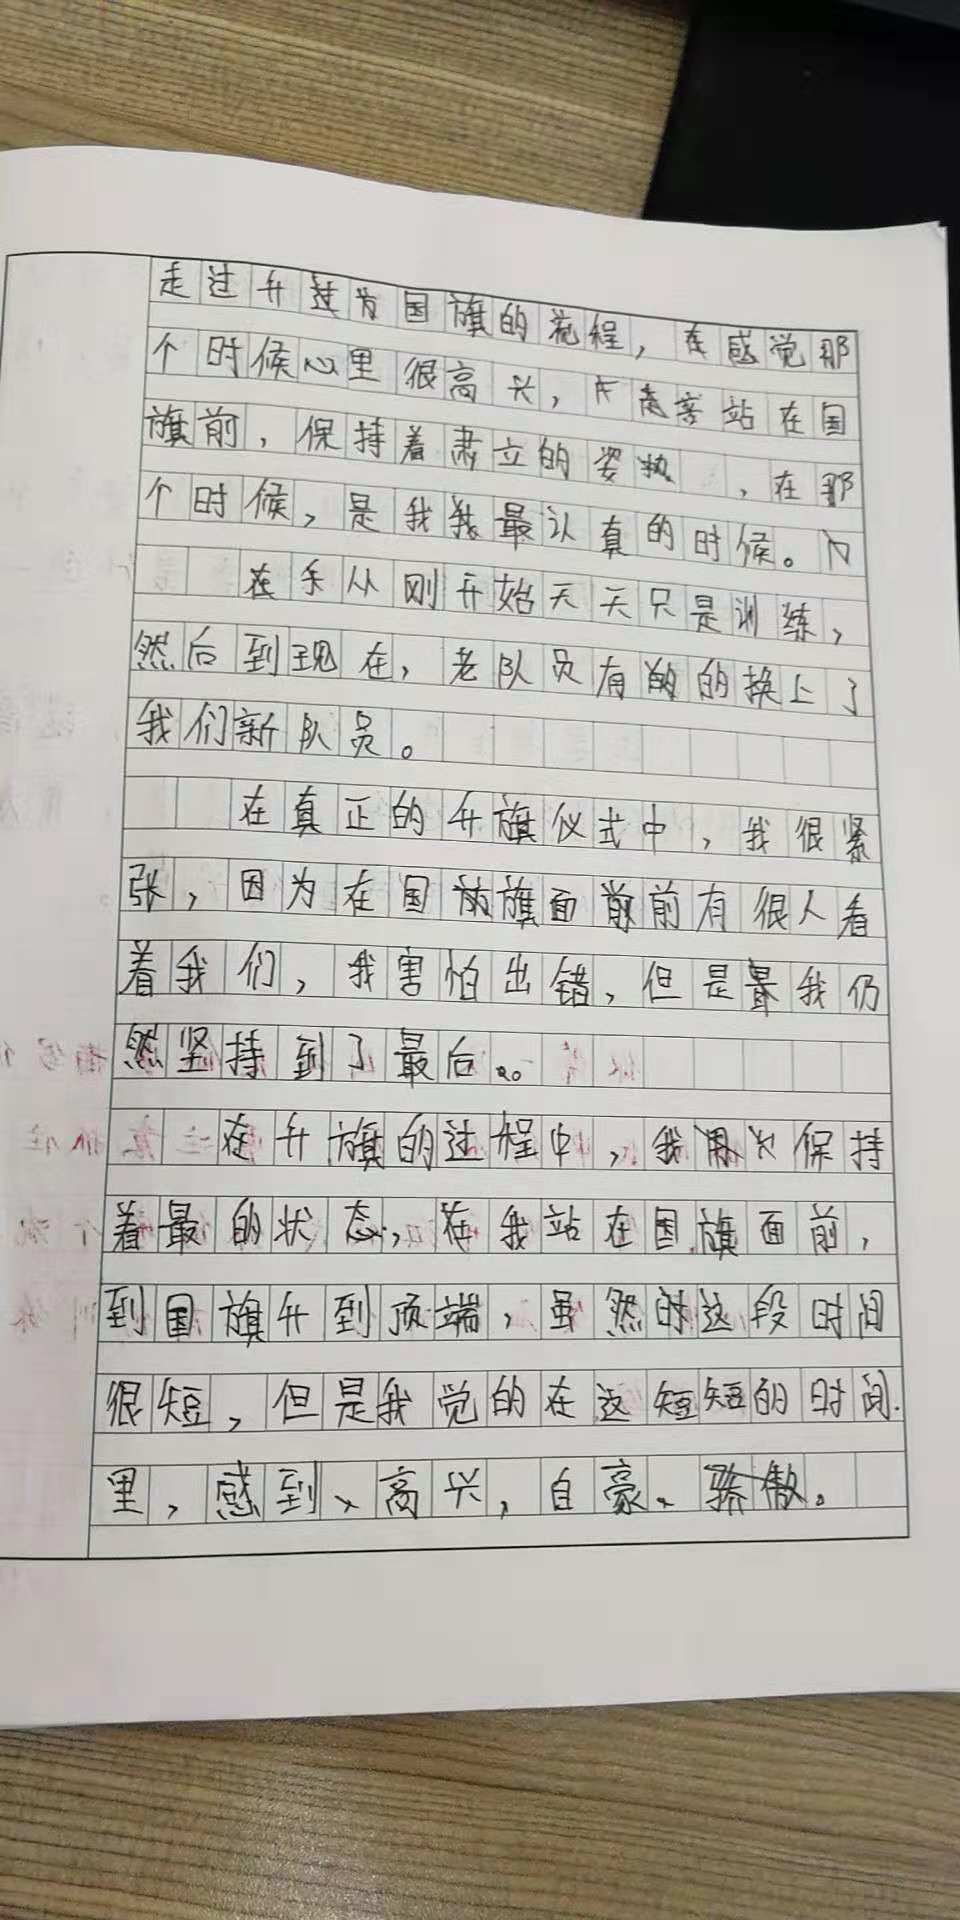 走过升过为国旗的流程，在感觉那
个时候心里很高兴，走旁站在国
旗前，保持着肃立的姿势，在那
个时候，是我我最认真的时候。
在手从刚开始天天只是训练，
然后到现在，老队员有的的换上了
我们新队员。
在真正的升旗仪式中，我很紧
张，因为在国旗面前前有很人看
着我们，我害怕出错，但是我仍
然坚持到了最后。
在升旗的过程中，我保持
着最的状态，在我站在国旗面前，
到国旗升到顶端，虽然的这段时间
很短，但是我觉的在这短短的时间
里，感到、高兴，自豪、骄傲。